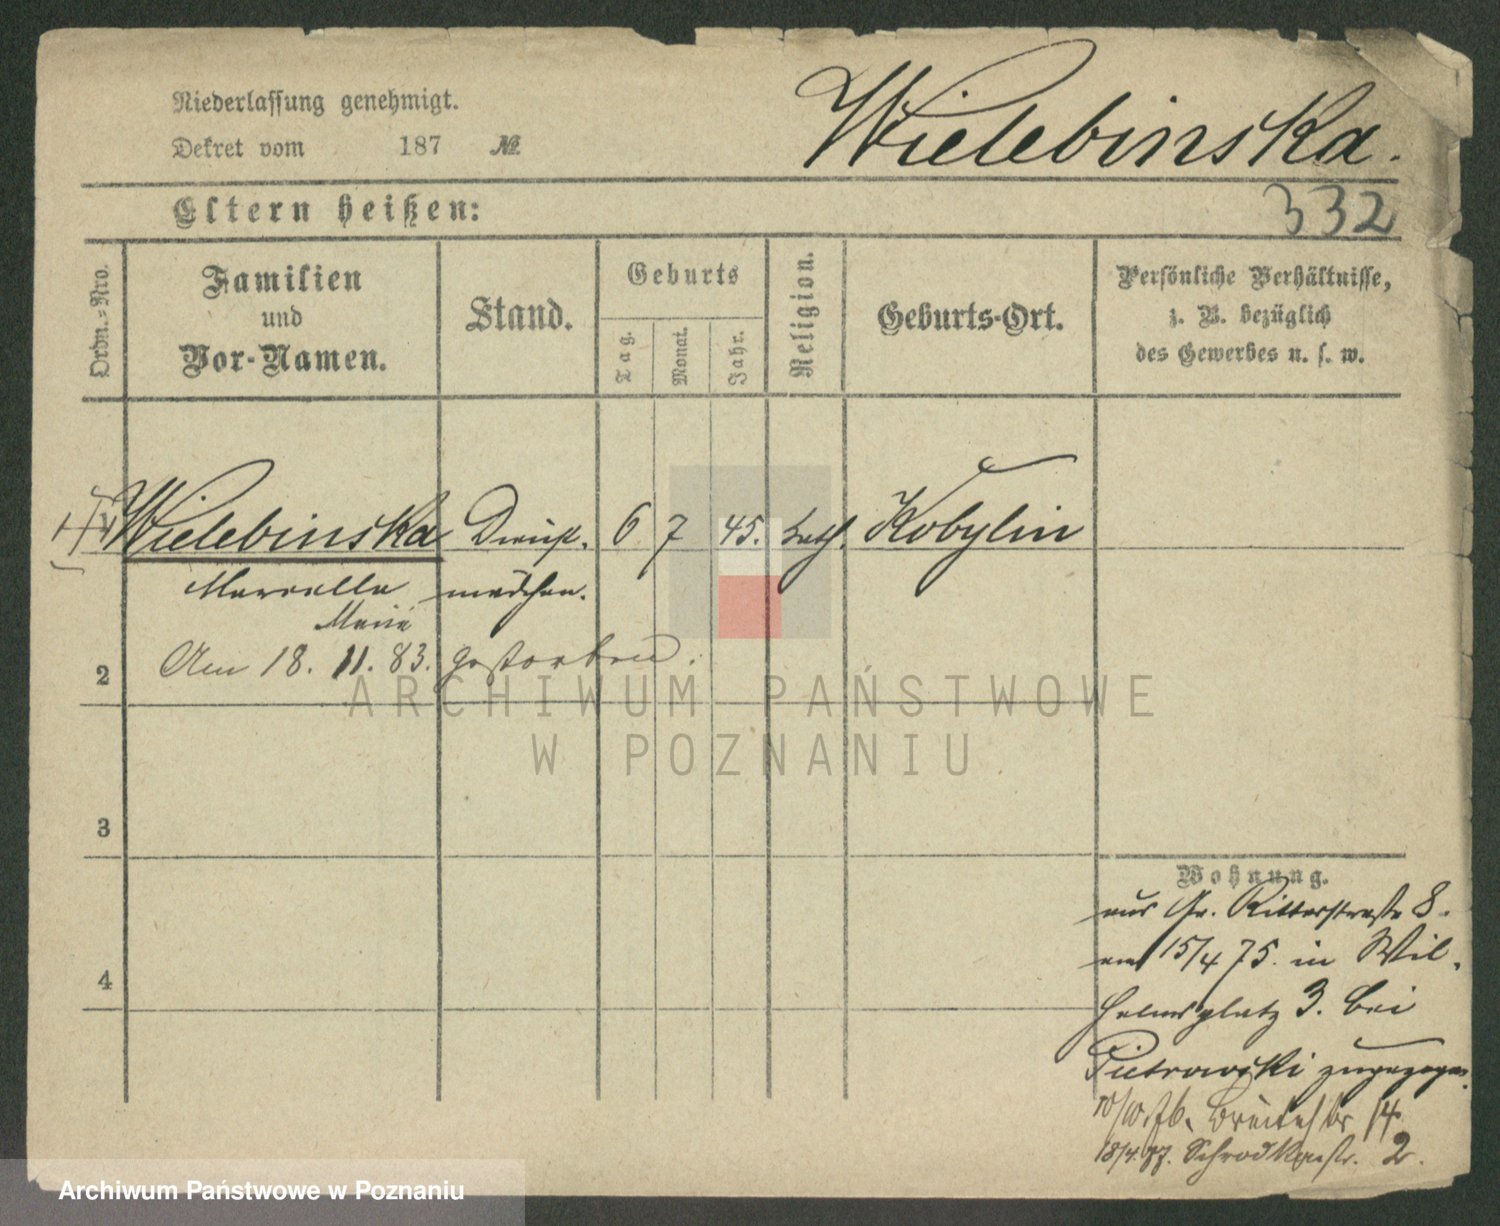 Niederlassung genehmigt.
Dekret vom 187 №
Wielebinska.
Eltern heißen:
332
Ordn.-Nro.
Familien
und
Vor-Namen.
Stand.
Geburts
Tag.
Monat.
Jahr.
Religion.
Geburts-Ort.
Persönliche Verhältnisse,
z. B. bezüglich
des Gewerbes u. s. w.
Wielebinska Dienst- 6 7 45. kath. Kobylin
Marcella mädchen.
Marie
2 Am 18. 11. 83. gestorben.
ARCHIWUM PAŃSTWOWE
W POZNANIU
3
4
Wohnung.
aus Gr. Ritterstraße 8.
am 15/4 75. in Wil-
helmsplatz 3. bei
Pietrowski zugezogen.
10/10. 76. Breitestr 14.
18/4. 77. Schrodkastr. 2.
Archiwum Państwowe w Poznaniu